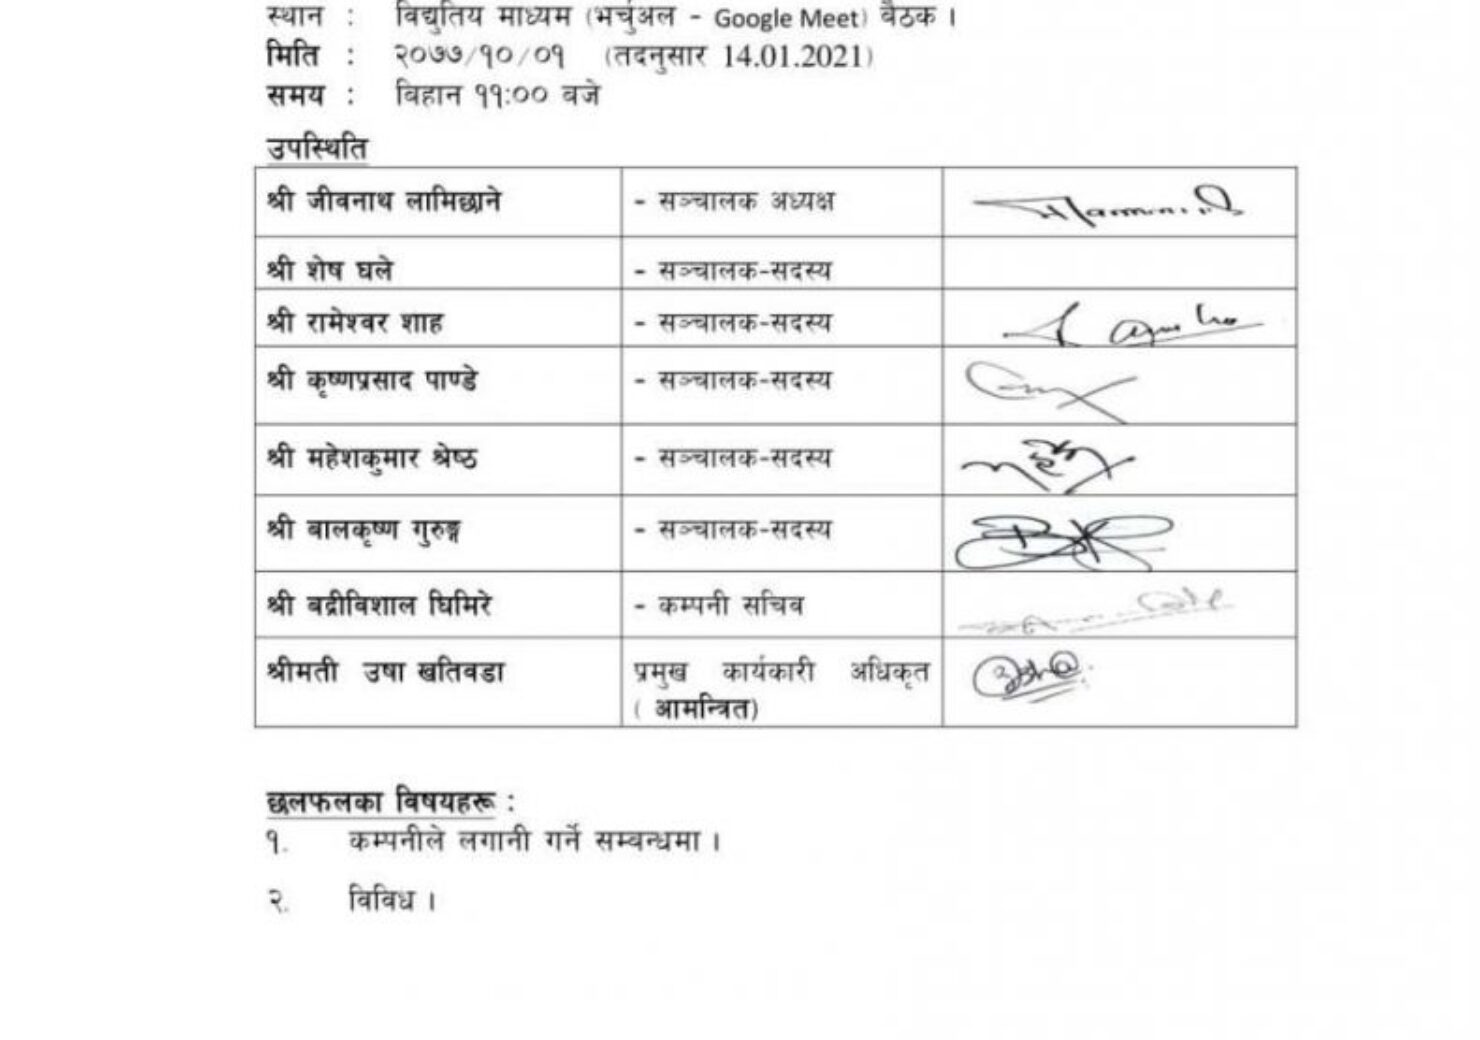 स्थान : विद्युतिय माध्यम (भर्चुअल - Google Meet) बैठक ।
मिति : २०७७/१०/०१ (तदनुसार 14.01.2021)
समय : विहान ११:०० वजे
उपस्थिति
श्री जीवनाथ लामिछाने - सञ्चालक अध्यक्ष
श्री शेष घले - सञ्चालक-सदस्य
श्री रामेश्वर शाह - सञ्चालक-सदस्य
श्री कृष्णप्रसाद पाण्डे - सञ्चालक-सदस्य
श्री महेशकुमार श्रेष्ठ - सञ्चालक-सदस्य
श्री बालकृष्ण गुरुङ्ग - सञ्चालक-सदस्य
श्री बद्रीविशाल घिमिरे - कम्पनी सचिव
श्रीमती उषा खतिवडा प्रमुख कार्यकारी अधिकृत
( आमन्त्रित)
छलफलका विषयहरू :
१. कम्पनीले लगानी गर्ने सम्बन्धमा ।
२. विविध ।